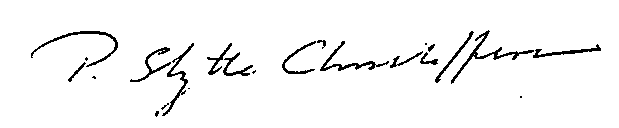 P. Slytte Christoffersen